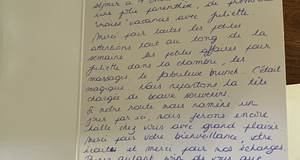 séjour à
une plus parenthèse, de
vacances avec Juliette
Merci pour toutes les petites
attentions tout au long de la
semaine les petites affaires pour
Juliette dans la chambre, les
massages, le fabuleux brunch. C'était
magique. Nous repartons la tête
chargée de beaux souvenirs.
Si notre route nous ramène un
jour par ici, nous ferons encore
halte chez vous avec grand plaisir
Merci pour votre bienveillance, votre
et merci pour nos échanges.
autant soin de vous que